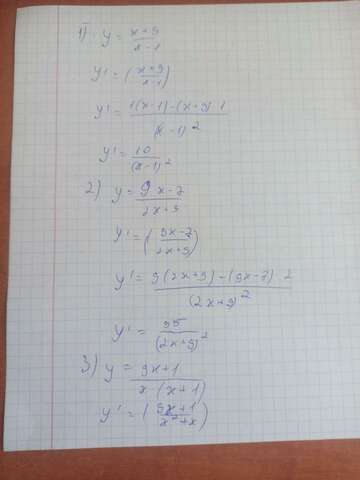 1) y = x+9 / x-1
y' = (x+9 / x-1)
y' = 1(x-1)-(x+9) 1 / (x-1)²
y' = 10 / (x-1)²
2) y = 9x-7 / 2x+9
y' = (9x-7 / 2x+9)
y' = 9(2x+9)-(9x-7) 2 / (2x+9)²
y' = 95 / (2x+9)²
3) y = 9x+1 / x(x+1)
y' = (9x+1 / x²+x)